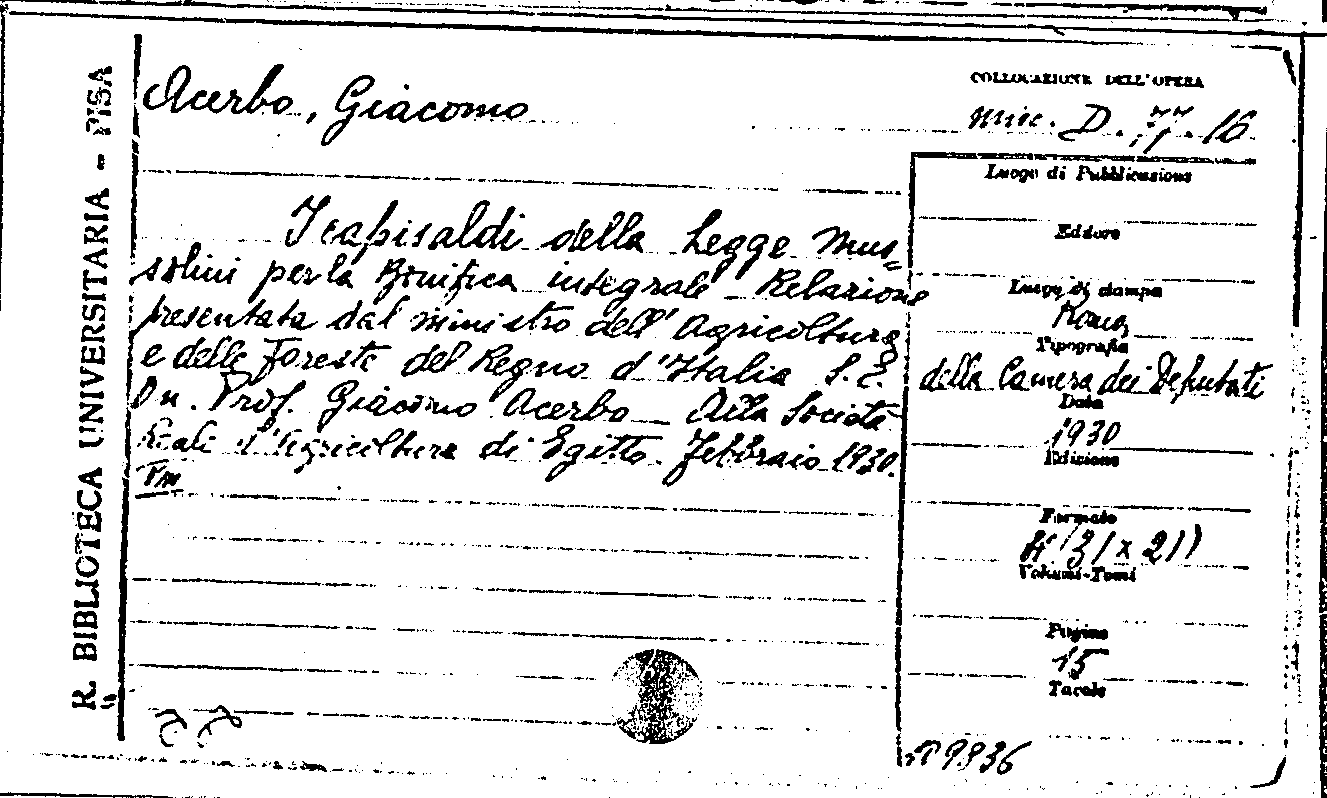 R. BIBLIOTECA UNIVERSITARIA - PISA
Acerbo, Giacomo
COLLOCAZIONE DELL'OPERA
Misc. D. 77. 16
I capisaldi della Legge Mus=
solini per la Bonifica integrale - Relazione
presentata dal ministro dell'Agricoltura
e delle Foreste del Regno d'Italia S. E.
On. Prof. Giacomo Acerbo - Alla Società
Reale d'Agricoltura di Egitto. Febbraio 1930.
Luogo di Pubblicazione
Editore
Luogo di stampa
Roma
Tipografia
della Camera dei Deputati
Data
1930
Edizione
Formato
4° (31 x 21)
Volumi-Tomi
Pagine
15
Tavole
9836